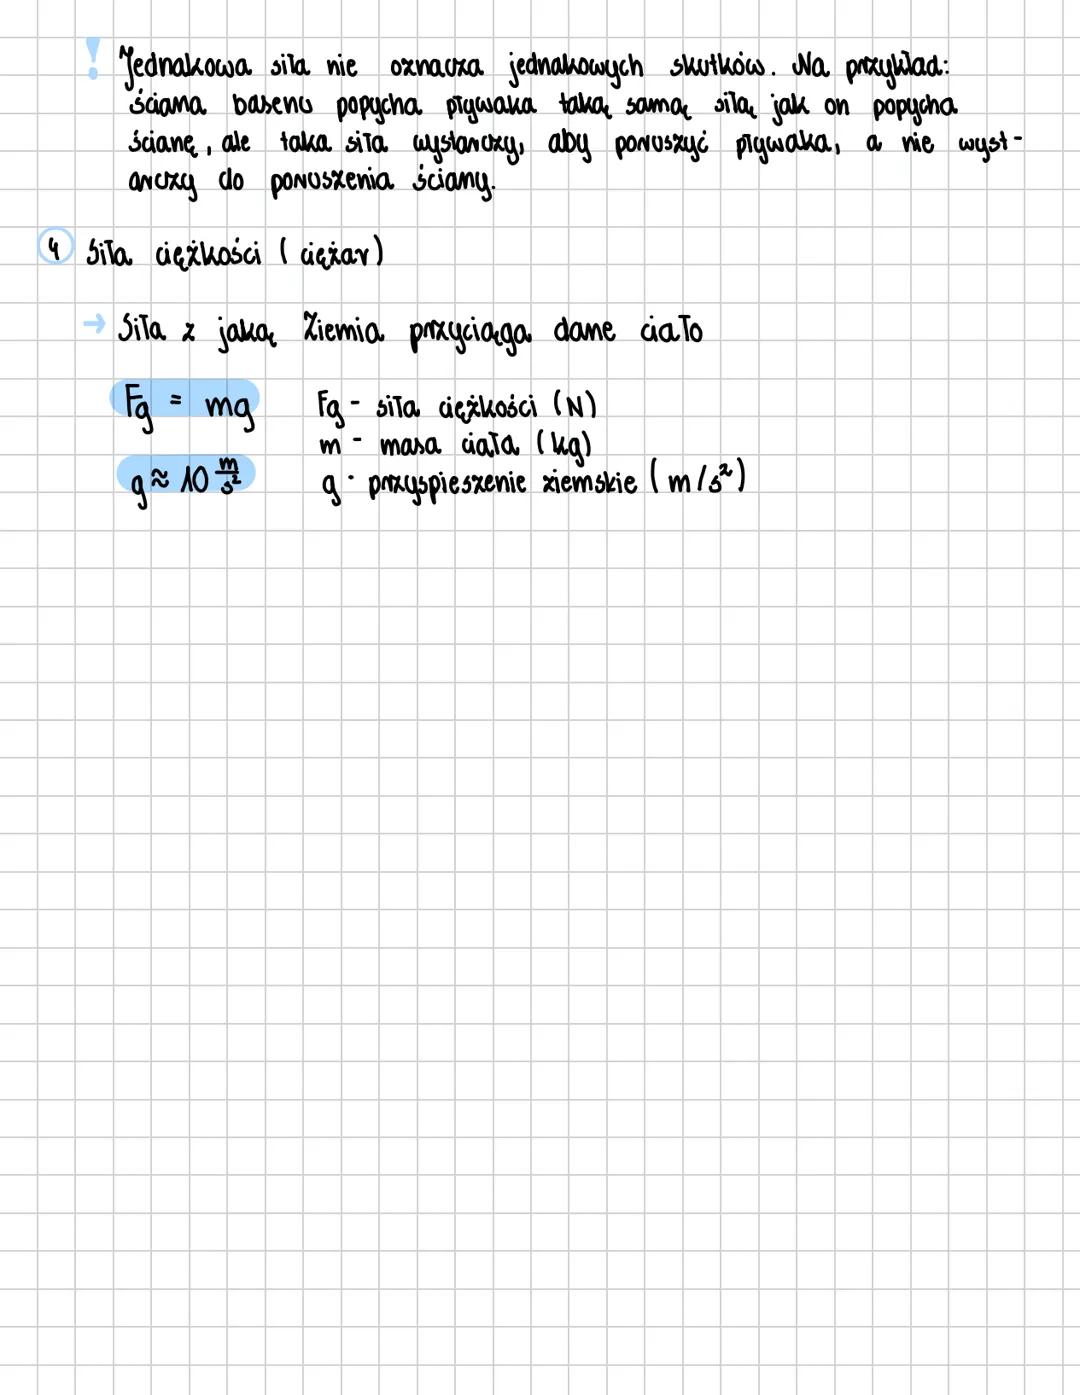 ! Jednakowa siła nie oznacza jednakowych skutków. Na przykład:
ściana basenu popycha pływaka taką samą siłą jak on popycha
ścianę, ale taka siła wystarczy, aby poruszyć pływaka, a nie wyst-
arczy do poruszenia ściany.
4 Siła ciężkości (ciężar)
→ Siła z jaką Ziemia przyciąga dane ciało
Fg = mg Fg - siła ciężkości (N)
m - masa ciała (kg)
g ≈ 10 m/s² g - przyspieszenie ziemskie (m/s²)